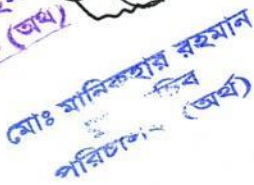 (অর্থ)
মোঃ মানিকহার রহমান
পরিচালক (অর্থ)